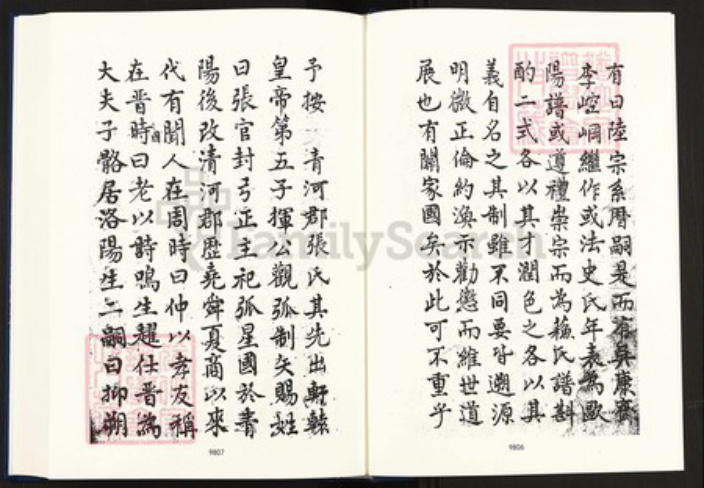 有曰陸宗系曆嗣是而有吳康齋
李崆峒繼作或法史氏年表為歐
陽譜或遵禮崇宗而為蘇氏譜斟
酌二式各以其才潤色之各以其
義自名之其制雖不同要皆遡源
明微正倫約渙示勸懲而維世道
展也有關家國矣於此可不重乎
9806
予按 青河郡張氏其先出軒轅
皇帝第五子揮公觀弧制矢賜姓
曰張官封弓正主祀弧星國於青
陽後改清河郡歷堯舜夏商以來
代有聞人在周時曰仲以孝友稱
在晋時曰老以詩鳴生趯任晋為
大夫子骼居洛陽生二嗣曰抑朔
9807
FamilySearch